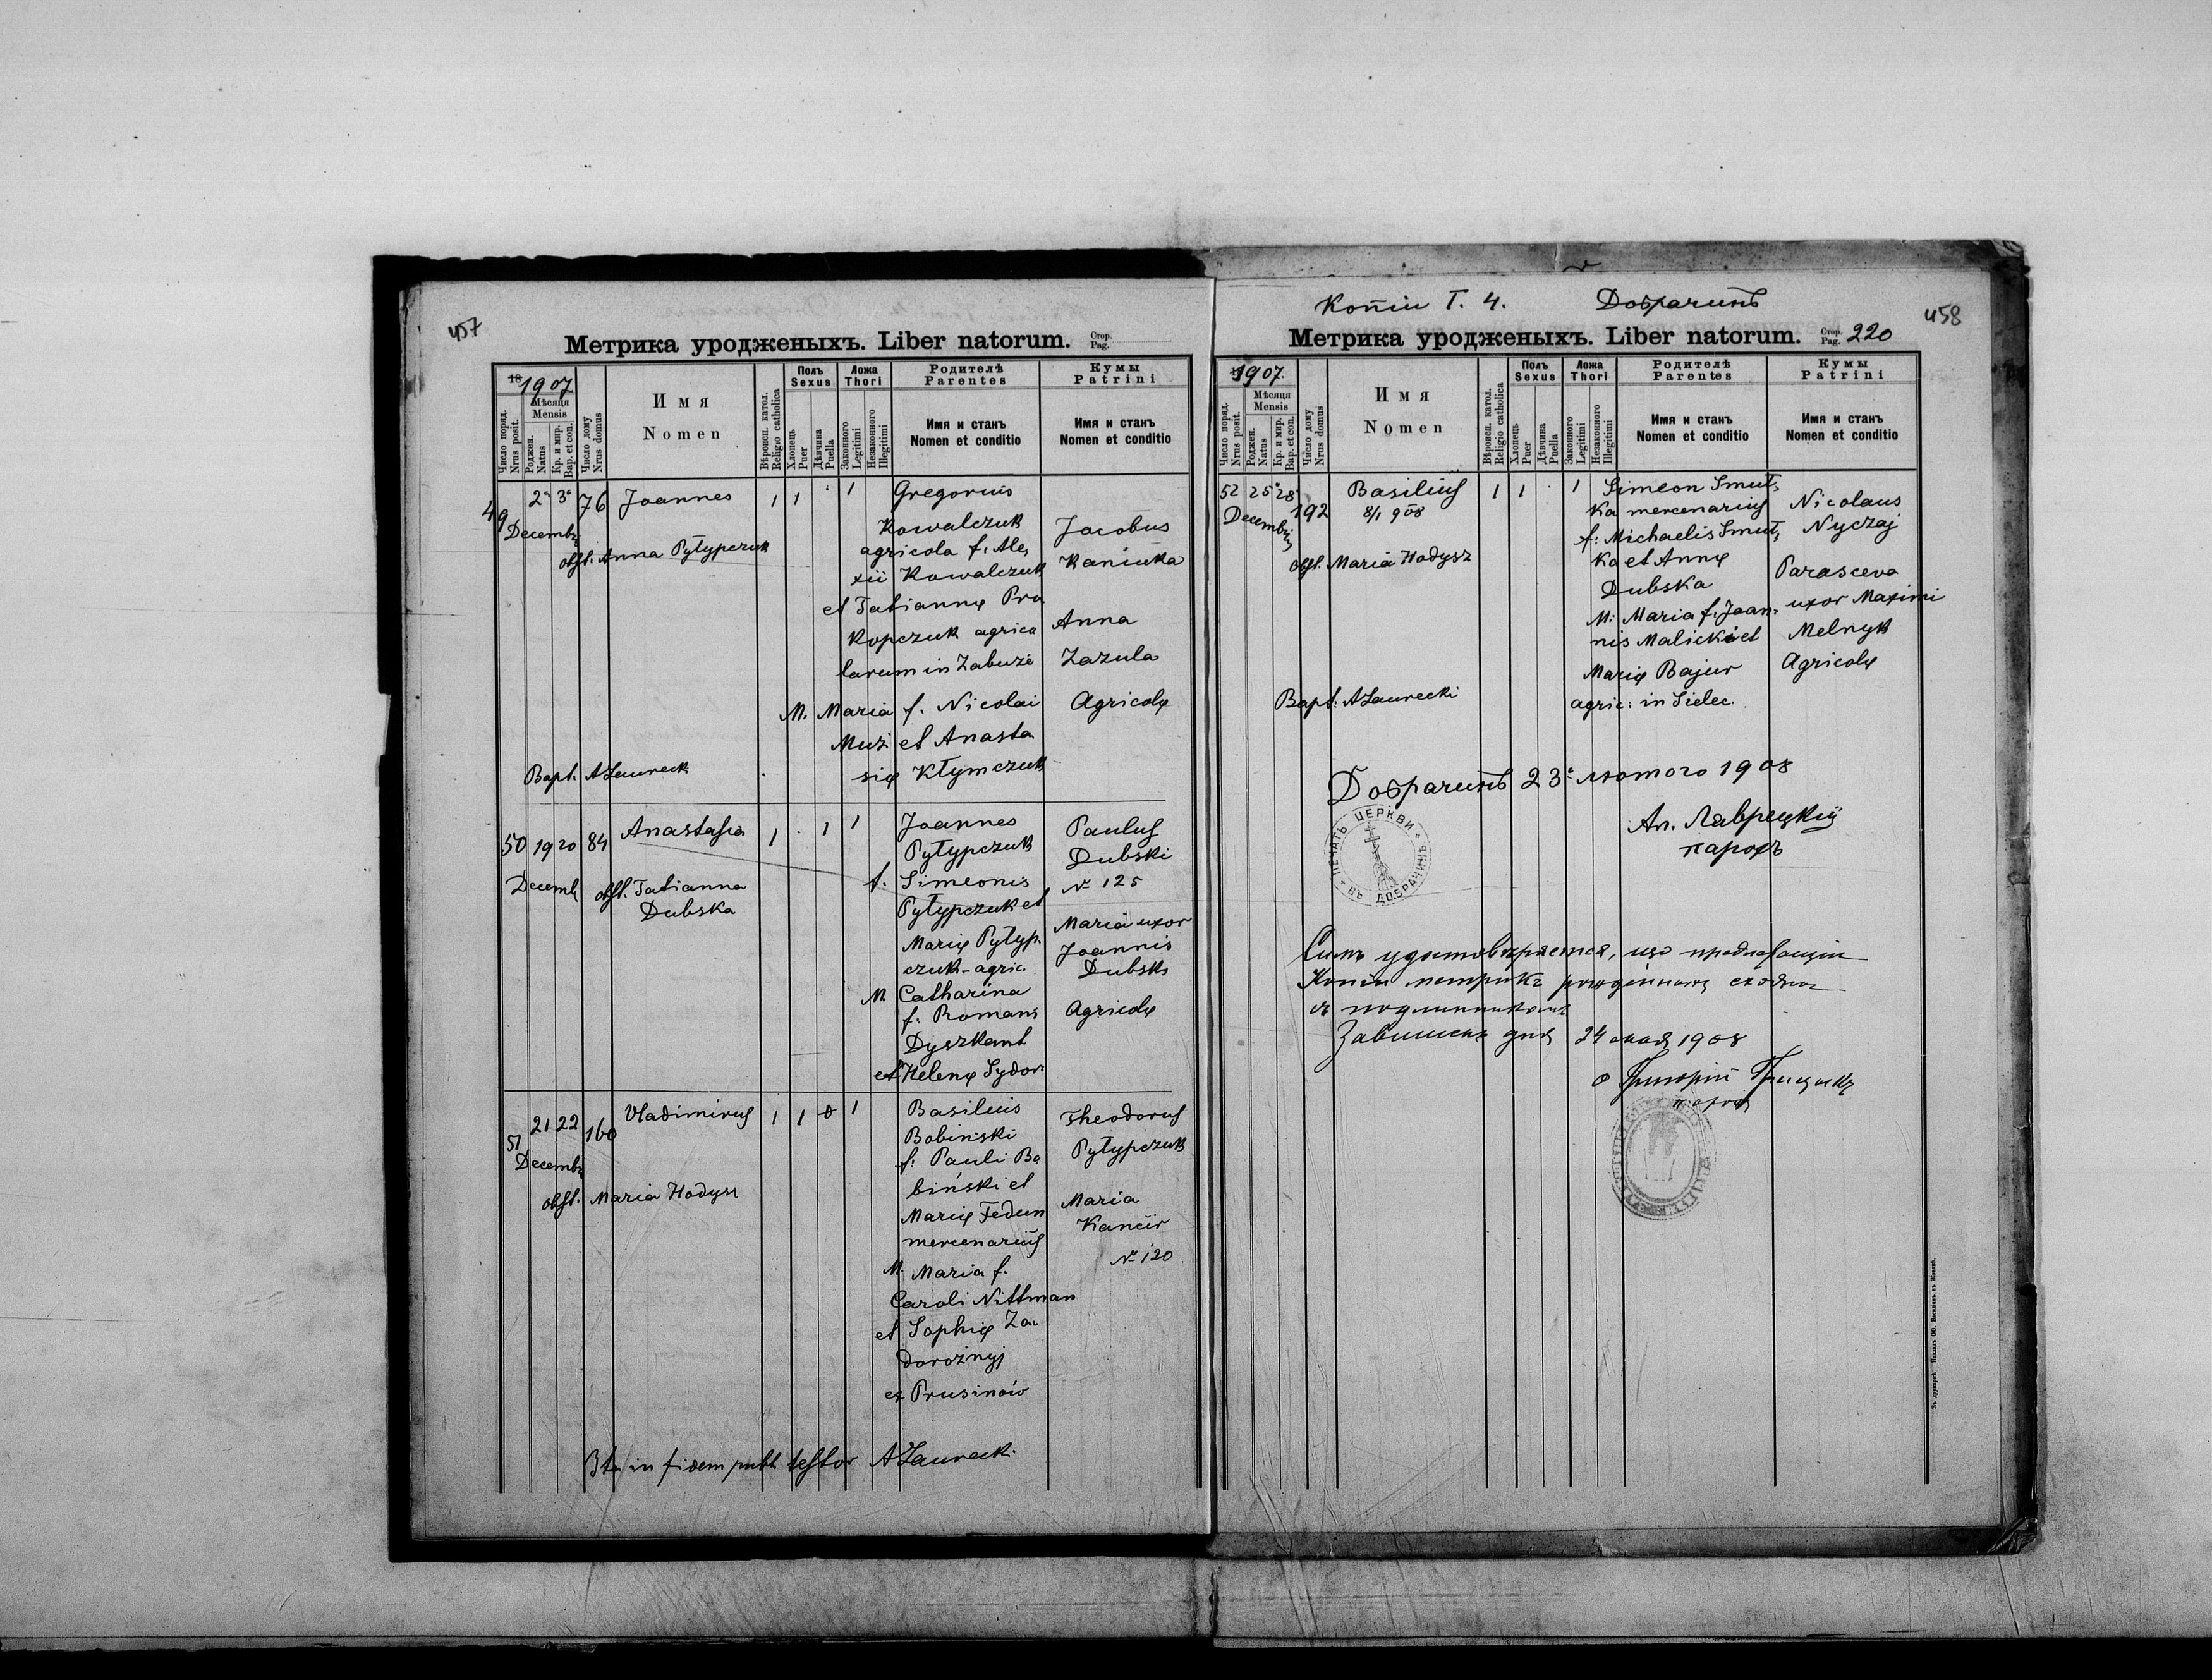 457
Метрика уродженыхъ. Liber natorum. Стор. Pag.
18 1907
Число поряд. Nrus posit.
Мѣсяця Mensis
Роджен. Natus
Кр. и мир. Bap. et con.
Число дому Nrus domus
Имя Nomen
Вѣроисп. катол. Religio catholica
Полъ Sexus
Хлопець Puer
Дѣвчина Puella
Ложа Thori
Законного Legitimi
Незаконного Illegitimi
Родителѣ Parentes
Имя и станъ Nomen et conditio
Кумы Patrini
Имя и станъ Nomen et conditio
49 2 3 76 Joannes 1 1 1
Decembris
obst. Anna Pyłypczuk
Gregorius
Kowalczuk
agricola f. Ale,
xii Kowalczuk
et Tatiannę Pro
kopczuk agrico
larum in Zabuże
M. Maria f. Nicolai
Muzi et Anasta
się Kłymczuk
Jacobus
Kaniuka
Anna
Zazula
Agricolę
Bapt. ALaurecki
50 19 20 84 Anastasia 1 1 1
Decemb
obst. Tatianna
Dubska
Joannes
Pyłypczuk
f. Simeonis
Pyłypczuk et
Marię Pyłyp.
czuk - agric.
M. Catharina
f. Romani
Dyszkant
et Helenę Sydor
Paulus
Dubski
N 125
Maria uxor
Joannis
Dubski
Agricolę
51 21 22 160 Vladimirus 1 1 1
Decembr
obst. Maria Hodysz
Basilius
Babinski
f. Pauli Ba
biński et
Marię Fedun
mercenarius
M. Maria f.
Caroli Nittman
et Sophię Za
dorożnyj
ex Prusinów
Theodorus
Pyłypczuk
Maria
Kancir
N 120
in fidem publ testor ALaurecki
Копіи Т. 4. Добрачинъ
458
Метрика уродженыхъ. Liber natorum. Стор. Pag. 220
1907.
Число поряд. Nrus posit.
Мѣсяця Mensis
Роджен. Natus
Кр. и мир. Bap. et con.
Число дому Nrus domus
Имя Nomen
Вѣроисп. катол. Religio catholica
Полъ Sexus
Хлопець Puer
Дѣвчина Puella
Ложа Thori
Законного Legitimi
Незаконного Illegitimi
Родителѣ Parentes
Имя и станъ Nomen et conditio
Кумы Patrini
Имя и станъ Nomen et conditio
52 25 28 192 Basilius 1 1 1
Decembris
8/1 908
obst. Maria Hodysz
Simeon Smut,
ka mercenarius
f: Michaelis Smut,
ka et Annę
Dubska
M: Maria f. Joan.
nis Malicki et
Marię Bajur
agric: in Sielec.
Nicolaus
Nyczaj
Parasceva
uxor Maximi
Melnyk
Agricolę
Bapt: ALaurecki
Добрачинъ 23 лютого 1908
Ал. Лаврецкій
парохъ
ПЕЧАТЬ ЦЕРКВИ ВЪ ДОБРАЧИНѢ
Симъ удостовѣряется, що предлежащіи
Копіи метрикъ рожденныхъ сходны
съ подлинникомъ
Завишень дня 24 мая 1908
о Григорій Грицыкъ
парох